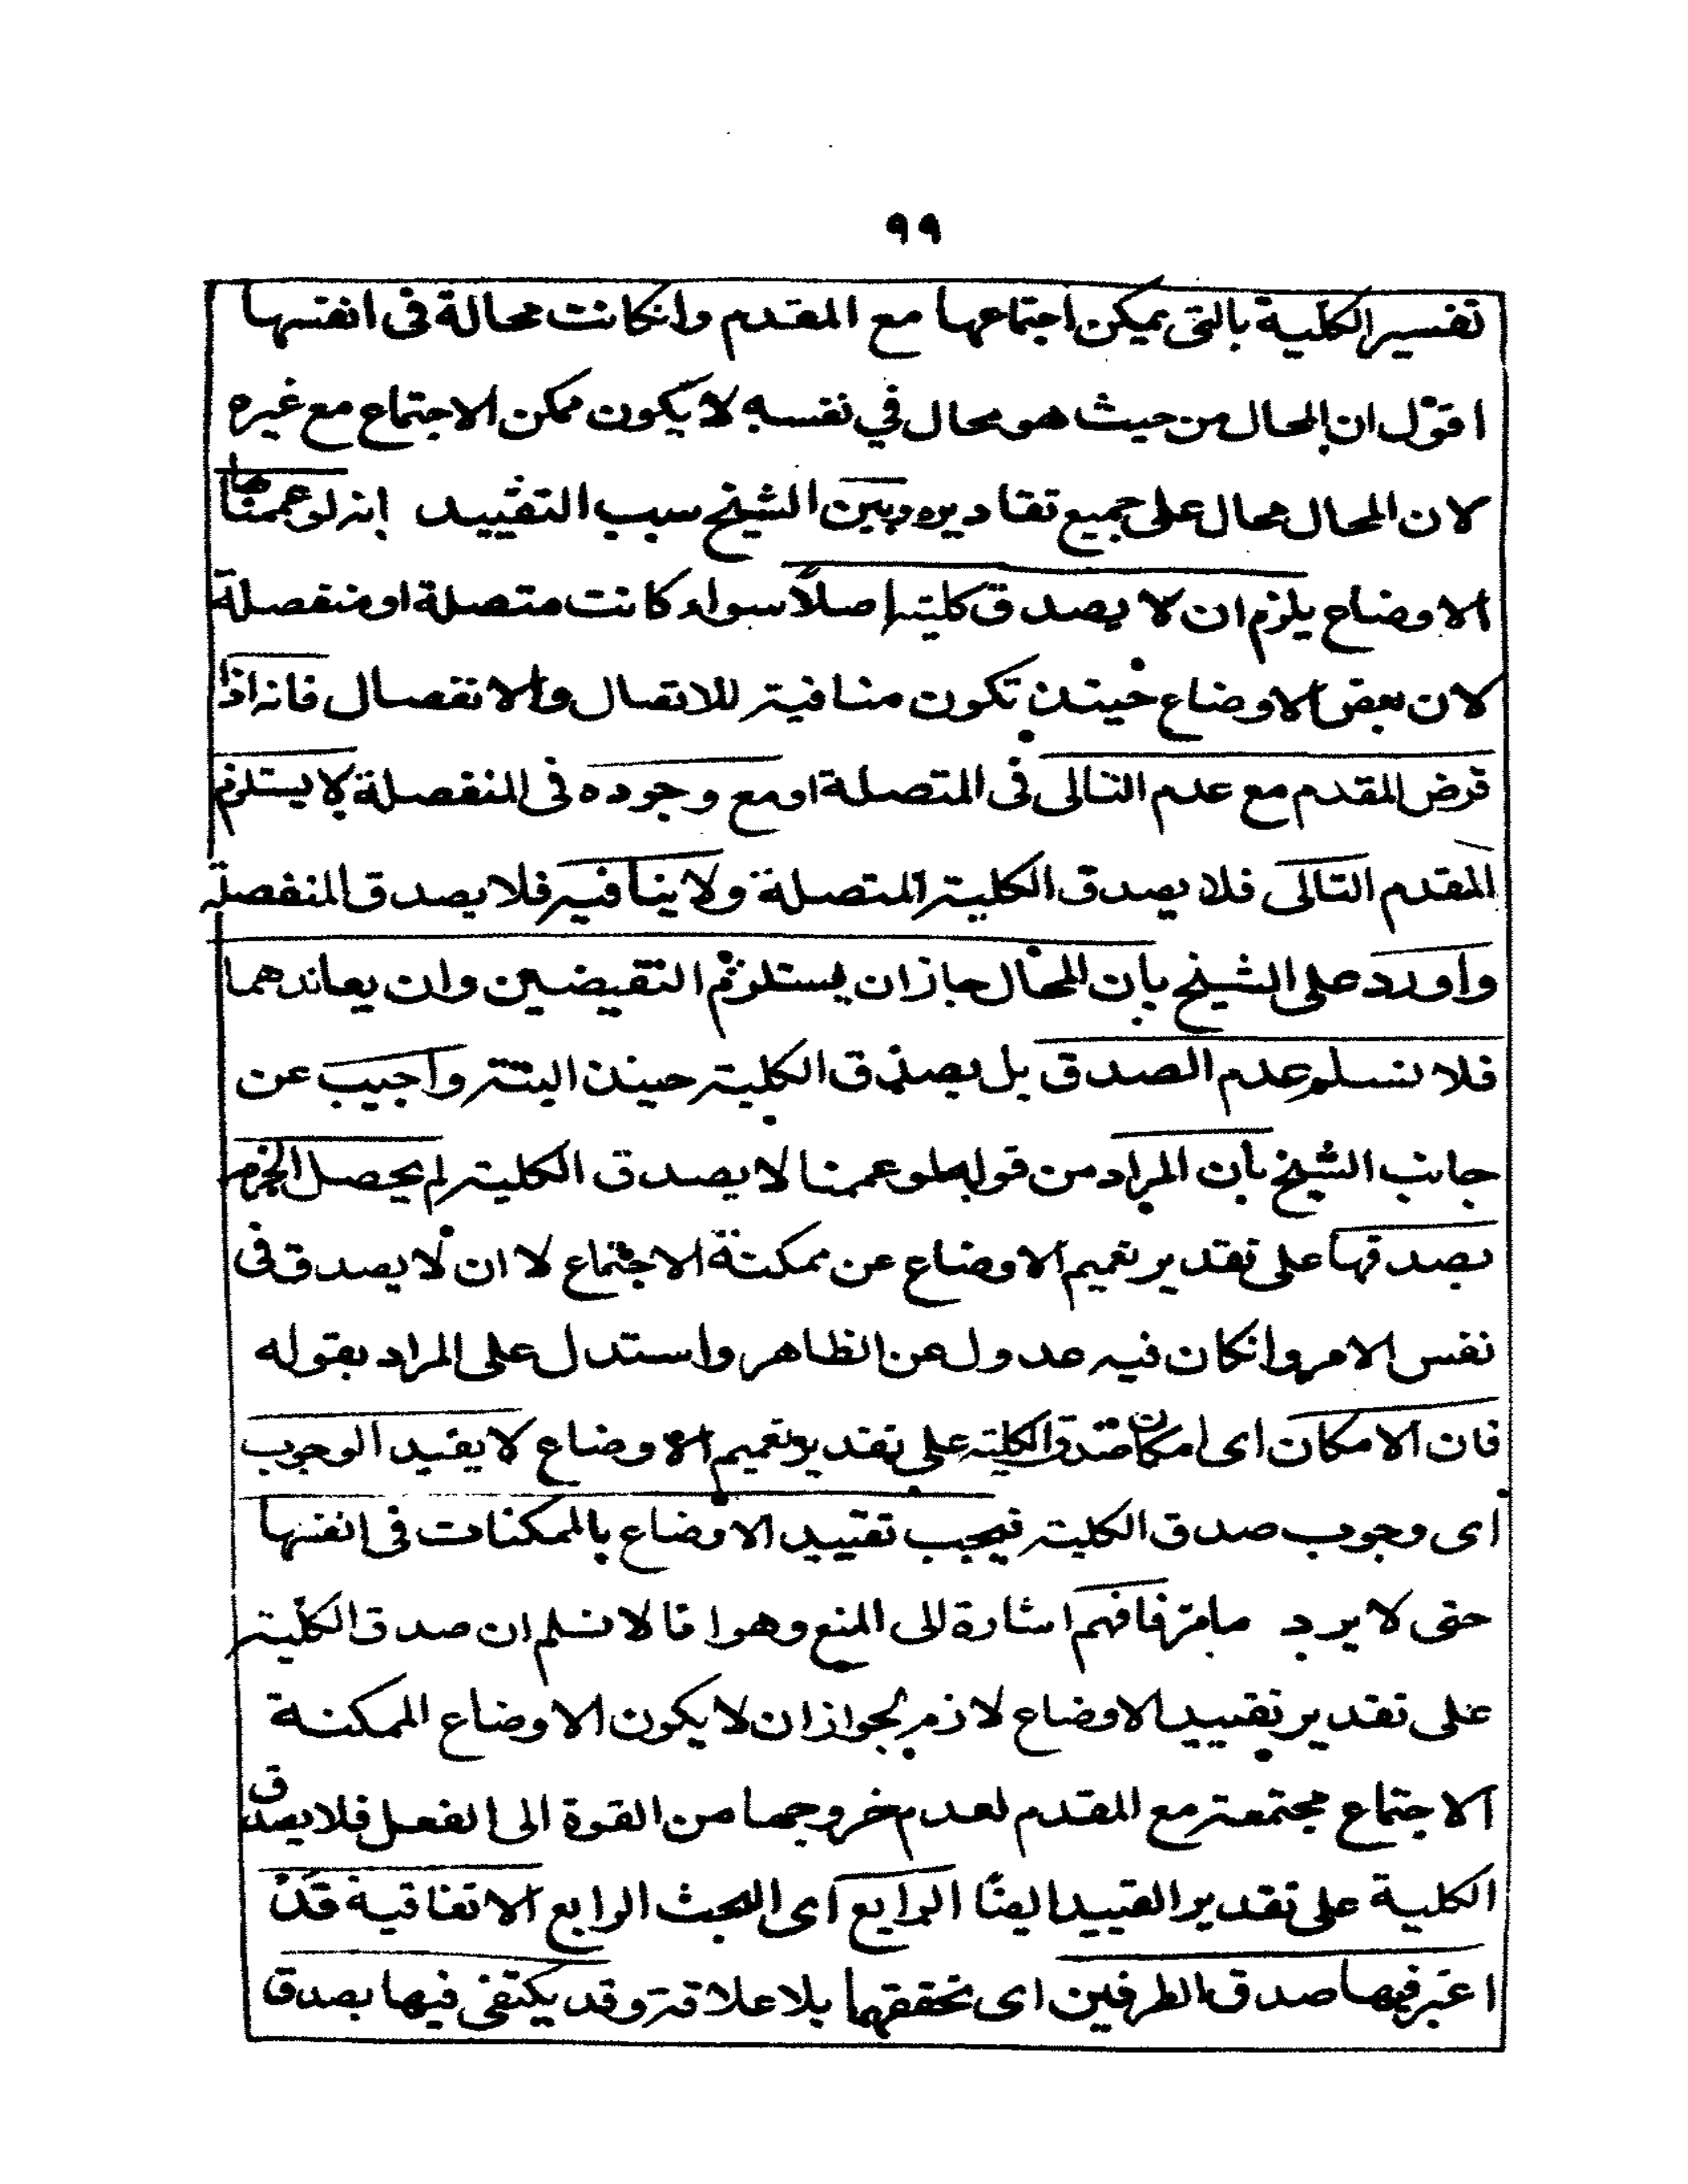 ٩٩
تفسير الكلية بالتى يمكن اجتماعها مع المقدم وانكانت محالة فى انفسها
اقول ان المحال من حيث هو محال في نفسه لا يكون ممكن الاجتماع مع غيره
لان المحال محال على جميع تقاديره وبين الشيخ سبب التقييد انه لو عممنا
الاوضاع يلزم ان لا يصدق كلية اصلاً سواء كانت متصلة او منفصلة
لان بعض الاوضاع حينئذ تكون منافية للاتصال والانفصال فانه اذا
فرض المقدم مع عدم التالى فى المتصلة او مع وجوده فى المنفصلة لا يستلزم
المقدم التالى فلا يصدق الكلية المتصلة ولا ينافيه فلا يصدق المنفصلة
واورد على الشيخ بان المحال جاز ان يستلزم النقيضين وان يعاندهما
فلا نسلم عدم الصدق بل يصدق الكلية حينئذ البتة واجيب عن
جانب الشيخ بان المراد من قوله لو عممنا لا يصدق الكلية لم يحصل الجزم
بصدقها على تقدير تعميم الاوضاع عن ممكنة الاجتماع لا ان لا يصدق فى
نفس الامر وانكان فيه عدول عن الظاهر واستدل على المراد بقوله
فان الامكان اى امكان صدق الكلية على تقدير تعميم الاوضاع لا يفيد الوجوب
اى وجوب صدق الكلية فيجب تقييد الاوضاع بالممكنات فى انفسها
حتى لا يرد مامر فافهم اشارة الى المنع وهو انا لا نسلم ان صدق الكلية
على تقدير تقييد الاوضاع لازم لجواز ان لا يكون الاوضاع الممكنة
الاجتماع مجتمعة مع المقدم لعدم خروجها من القوة الى الفعل فلا يصدق
الكلية على تقدير القييد ايضًا الرابع اى البحث الرابع الاتفاقية قد
اعتبر فيها صدق الطرفين اى تحققهما بلا علاقة وقد يكتفى فيها بصدق